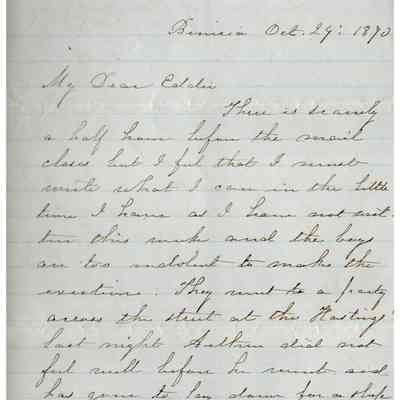 Benicia Oct. 29: 1870
My Dear Eddie
There is scarcely
a half hour before the mail
closes but I feel that I must
write what I can in the little
time I have as I have not writ-
ten this week and the boys
are too indolent to make the
exertion. They went to a party
across the street at the Hastings'
last night Arthur did not
feel well before he went and
has gone to lay down for a sleep